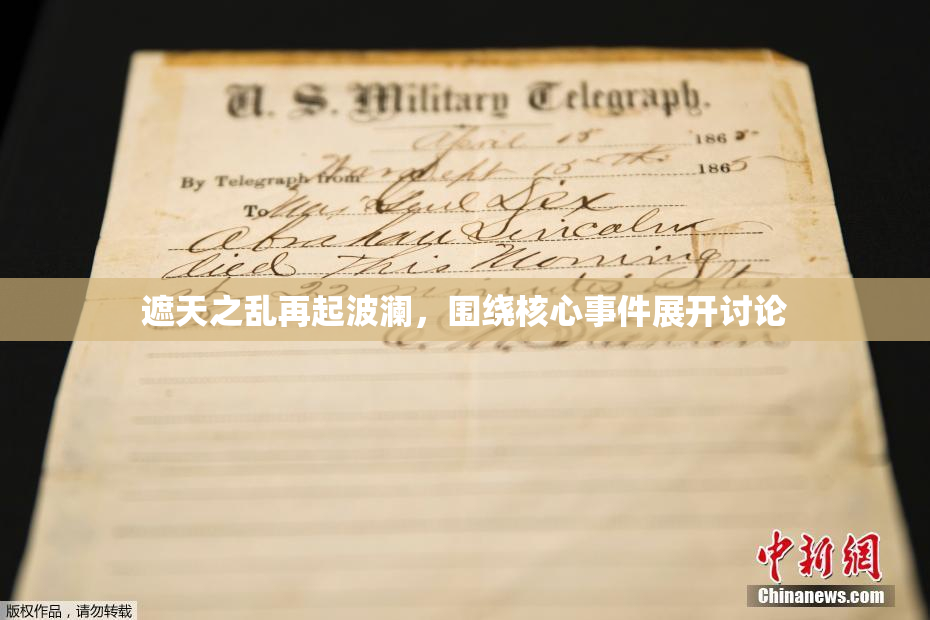 U. S. Military Telegraph.
April 15 1865
By Telegraph from War Dept 15th 1865
To Maj Genl Dix
Abraham Lincoln
died This Morning
at 22 minutes after
遮天之乱再起波澜，围绕核心事件展开讨论
E. M. Stanton
中新网
Chinanews.com
版权作品，请勿转载